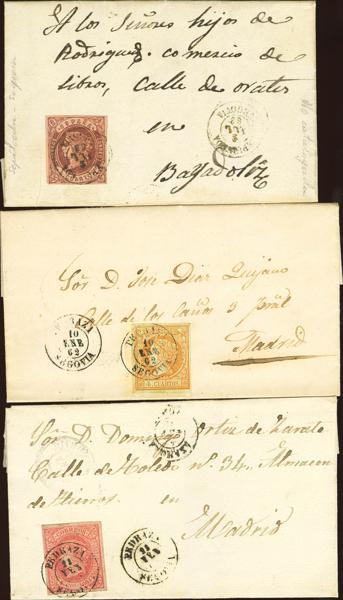 A los Señores hijos de
Rodriguez comercio de
libros, calle de orates
en
Bayadoliz
Sor D. Jose Diaz Quijano
Calle de los Caños 3 pral
Madrid
PEDRAZA
10
ENE
62
SEGOVIA
10
ENE
62
SEGOVIA
4 CUARTOS
Sor D. Domingo Ortiz de Zarate
Calle de Toledo nº 34, Almacen
de Hierros en
Madrid
PEDRAZA
PEDRAZA
SEGOVIA